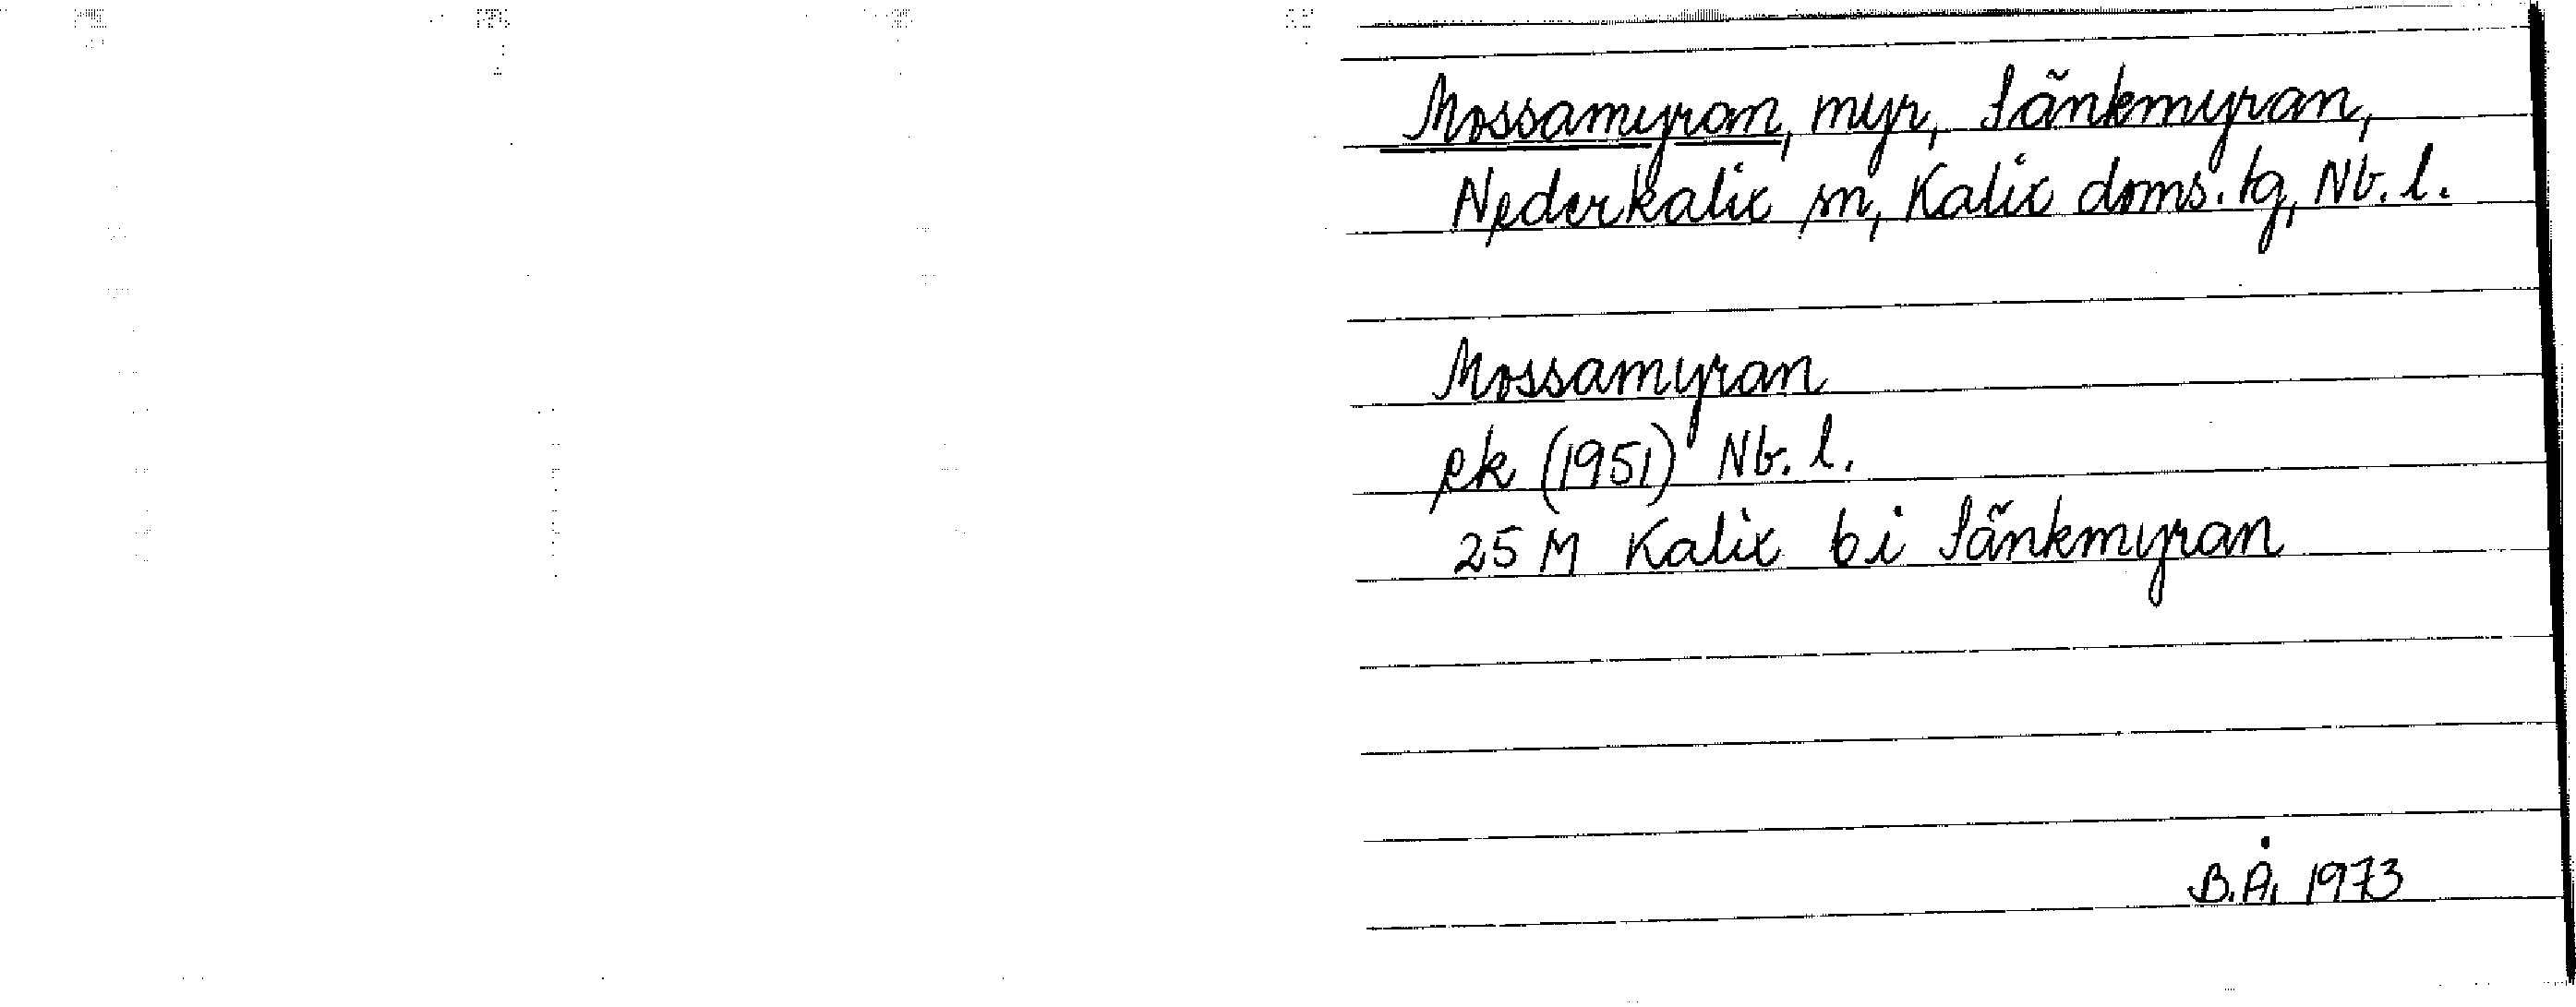 Mossamyran, myr, Sänkmyran,
Nederkalix sn, Kalix doms. tg, Nb. l.
Mossamyran
ek (1951) Nb. l.
25 M Kalix bi Sänkmyran
B.Å. 1973